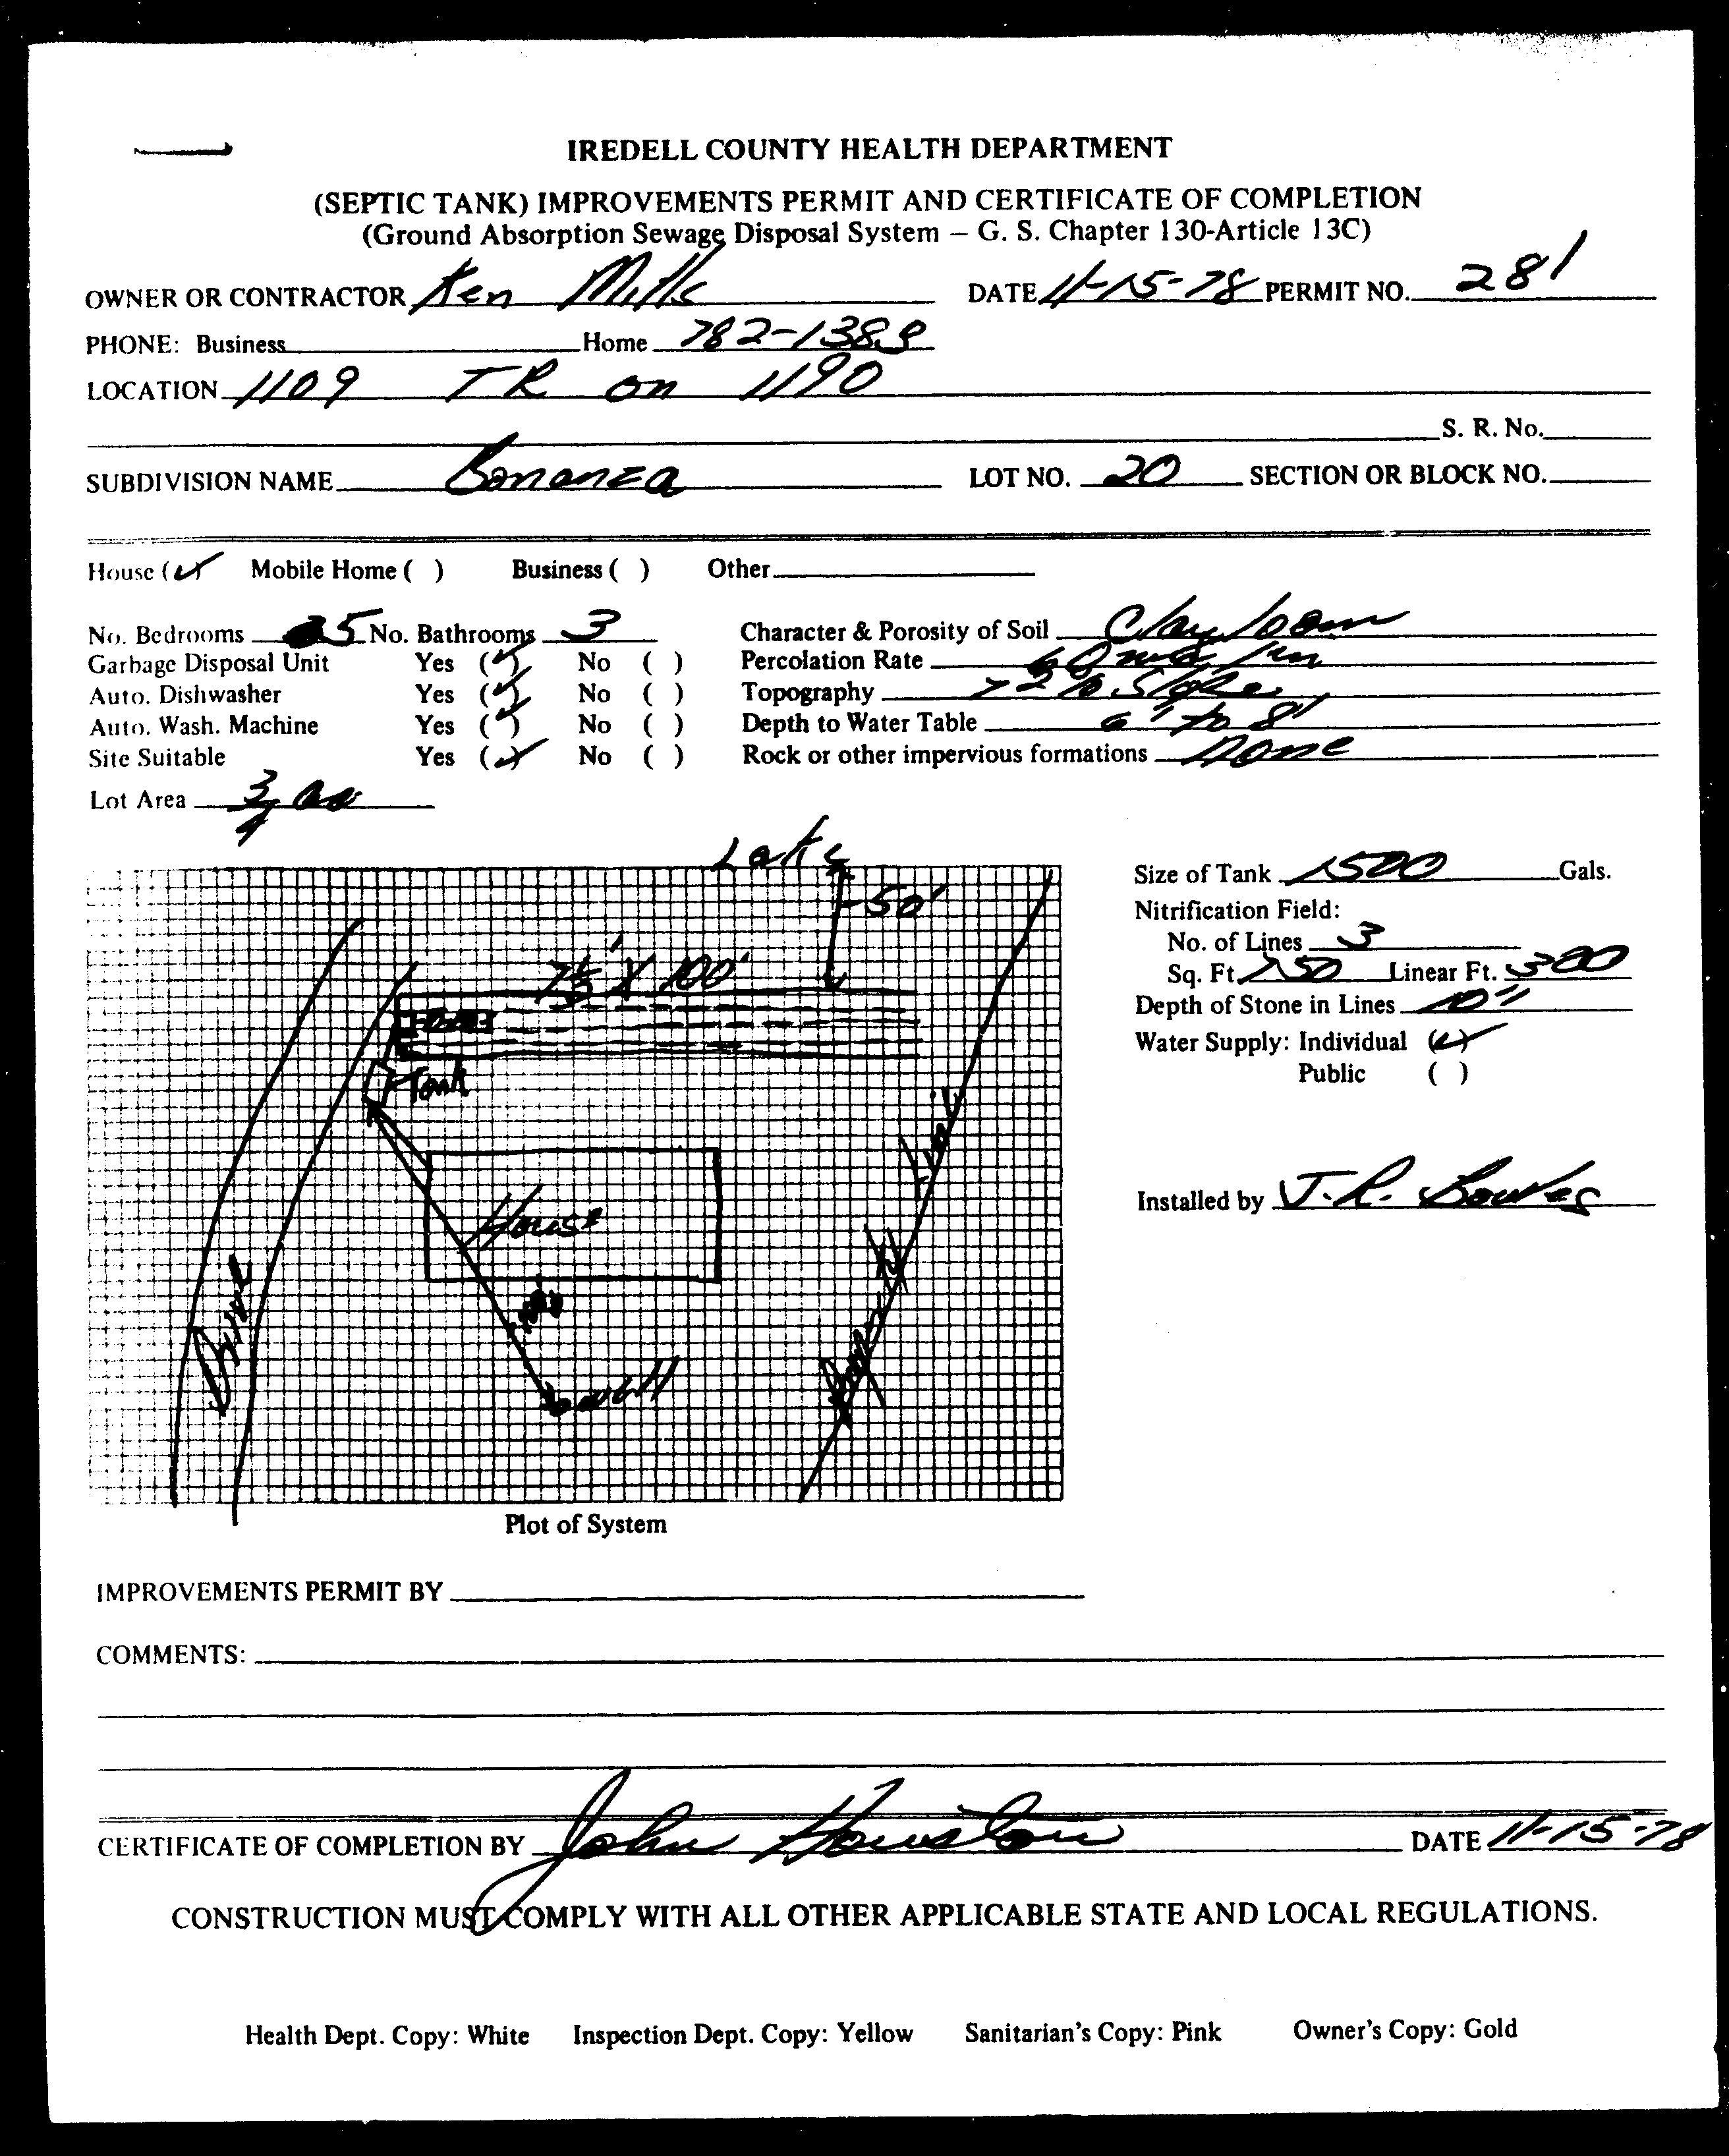 IREDELL COUNTY HEALTH DEPARTMENT
(SEPTIC TANK) IMPROVEMENTS PERMIT AND CERTIFICATE OF COMPLETION
(Ground Absorption Sewage Disposal System – G. S. Chapter 130-Article 13C)
OWNER OR CONTRACTOR Ken Mills DATE 11-15-78 PERMIT NO. 281
PHONE: Business Home 782-1383
LOCATION 1109 TR on 1190
S. R. No.
SUBDIVISION NAME Bonanza LOT NO. 20 SECTION OR BLOCK NO.
House (✓) Mobile Home ( ) Business ( ) Other
No. Bedrooms 5 No. Bathrooms 3 Character & Porosity of Soil Clay loam
Garbage Disposal Unit Yes (✓) No ( ) Percolation Rate 60 min / in
Auto. Dishwasher Yes (✓) No ( ) Topography > 2% Slope
Auto. Wash. Machine Yes (✓) No ( ) Depth to Water Table 6' to 8'
Site Suitable Yes (✓) No ( ) Rock or other impervious formations none
Lot Area 3/4
Lake
Size of Tank 1500 Gals.
50'
Nitrification Field:
No. of Lines 3
7½' X 100'
Sq. Ft. 750 Linear Ft. 300
Depth of Stone in Lines 10"
Water Supply: Individual (✓)
Public ( )
Tank
Installed by J. R.
House
Drive
well
Plot of System
IMPROVEMENTS PERMIT BY
COMMENTS:
CERTIFICATE OF COMPLETION BY John Houston DATE 11-15-78
CONSTRUCTION MUST COMPLY WITH ALL OTHER APPLICABLE STATE AND LOCAL REGULATIONS.
Health Dept. Copy: White Inspection Dept. Copy: Yellow Sanitarian's Copy: Pink Owner's Copy: Gold